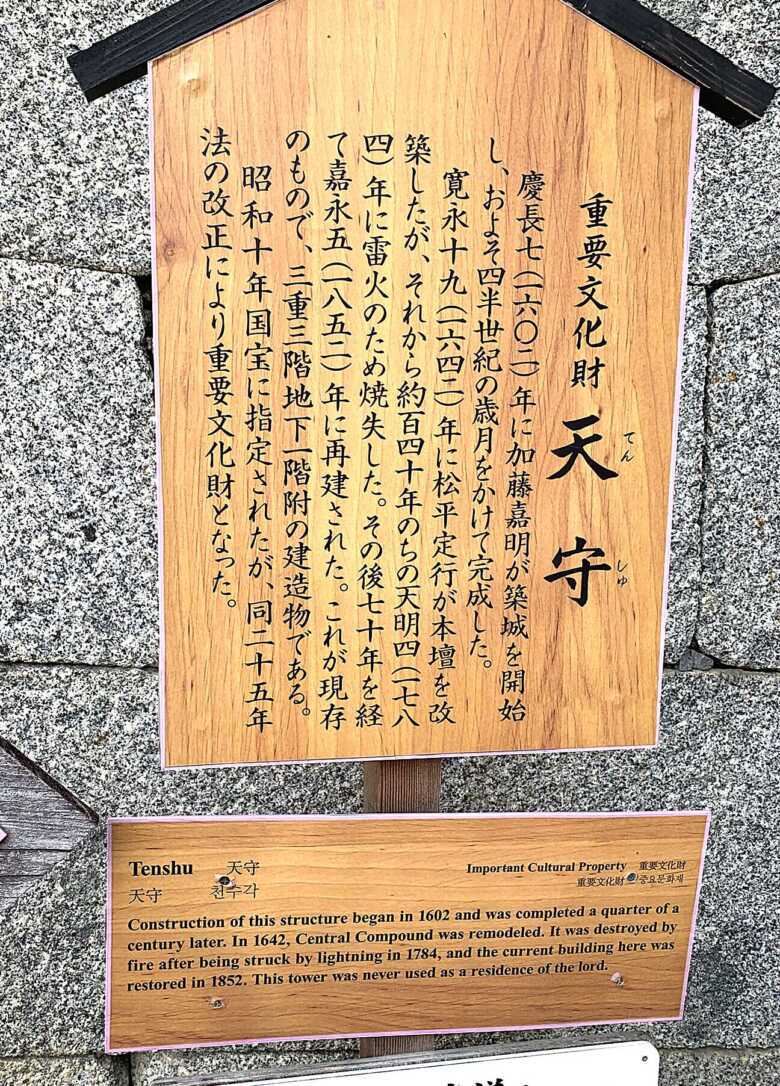 重要文化財 天守
てんしゅ
慶長七(一六〇二)年に加藤嘉明が築城を開始
し、およそ四半世紀の歳月をかけて完成した。
寛永十九(一六四二)年に松平定行が本壇を改
築したが、それから約百四十年のちの天明四(一七八
四)年に雷火のため焼失した。その後七十年を経
て嘉永五(一八五二)年に再建された。これが現存
のもので、三重三階地下一階附の建造物である。
昭和十年国宝に指定されたが、同二十五年
法の改正により重要文化財となった。
Tenshu 天守
天守 천수각
Important Cultural Property 重要文化財
重要文化財 중요문화재
Construction of this structure began in 1602 and was completed a quarter of a
century later. In 1642, Central Compound was remodeled. It was destroyed by
fire after being struck by lightning in 1784, and the current building here was
restored in 1852. This tower was never used as a residence of the lord.